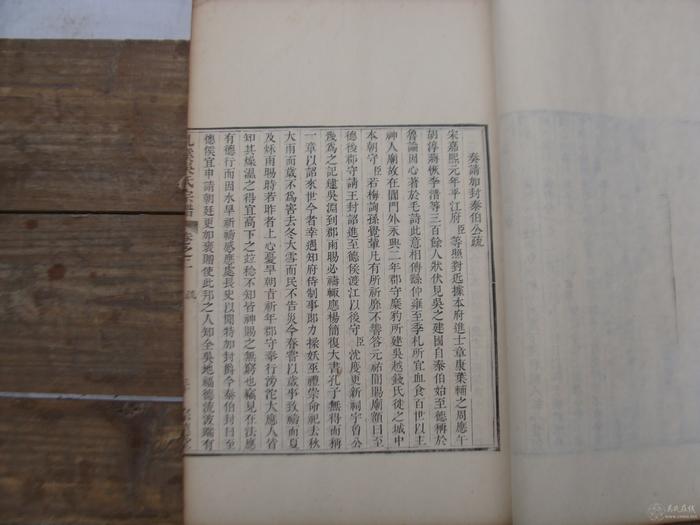 奏請加封泰伯公疏
宋嘉熙元年平江府臣等照對近據本府進士章康葉輔之周應午
胡淳蔣恢李漕等三百餘人狀伏見吳之建國自泰伯始至德稱於
魯論因心著於毛詩此意相傳繇仲雍至季札所宜血食百世以主
神人廟故在閶門外永興二年郡守糜豹所建吳越錢氏徙之城中
本朝守臣若梅詢孫覺輩凡有所祈靡不響答元祐間賜廟額曰至
德後郡守請王封詔進至德侯渡江以後守臣沈度更新祠宇曾公
幾為之記逮吳淵到郡雨暘必禱輒應楊簡復大書孔子無得而稱
一章以詔來世今者幸遇知府侍制事即力操妖至禮崇命祀去秋
大雨而歲不為害去冬大雪而民不告災今春嘗以歲事致禱而夏
及秋雨暘時若昨者上心憂旱朝旨祈年郡守奉行滂沱大應人皆
知其燥濕之得宜高下之竝稔不知皆神賜之無窮也竊見在法應
有德行而因水旱祈禱感應處長史以聞特加封爵今泰伯封曰至
德侯宜申請朝廷更加褒贈使此邦之人知全吳地福德流波端有
氏宗譜 卷之二